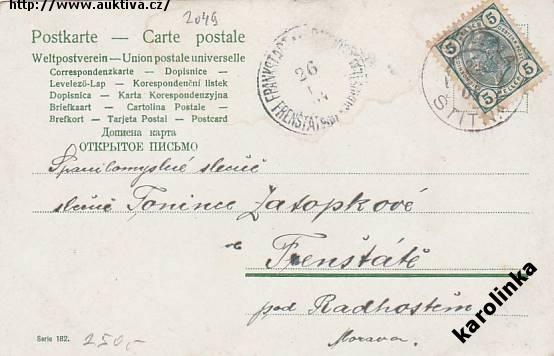 http://www.auktiva.cz
2049
Postkarte — Carte postale
Weltpostverein — Union postale universelle
Correspondenzkarte — Dopisnice
Levelező-Lap — Korespondenční lístek
Dopisnica — Karta Korespondenzyjna
Briefkaart — Cartolina Postale
Brefkort — Tarjeta Postal — Postcard
Дописна карта
ОТКРЫТОЕ ПИСЬМО
5 5
5 5
FRANKSTADT
26
FRENŠTÁT
Spanilomyslné slečně
slečně Tonince Zatopkové
Frenštátě
pod Radhoštěm
Morava.
Serie 182.
250,-
karolinka